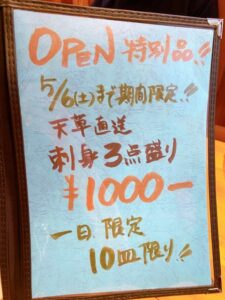 OPEN 特別品!!
5/6(土)まで期間限定!!
天草直送
刺身3点盛り
¥1000-
一日限定
10皿限り!!